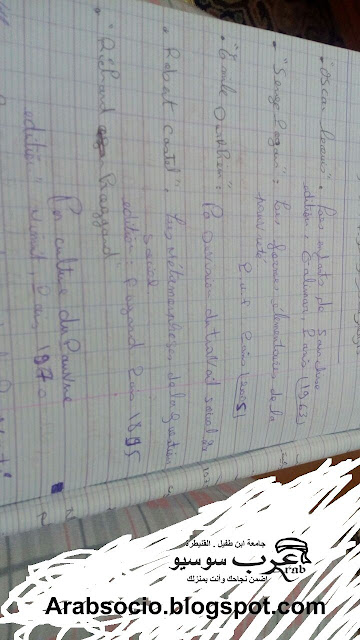 "Oscar Lewis". Les enfants de Sanchez
édition, Galimar, Paris (1963)
• "Serge Pogam": Les formes élémentaires de la
pauvreté
P.u.f Paris (2005)
• "Emile Durkheim": De la Division du travail social
• "Robert Castel": Les métamorphoses de la question
sociale
édition: Fayard Paris 1995
• "Richard Hoggart"
La culture du Pauvre
édition" minuit, Paris, 1970
جامعة ابن طفيل . القنيطرة
عرب سوسيو
Arab
اضمن نجاحك وأنت بمنزلك
Arabsocio.blogspot.com